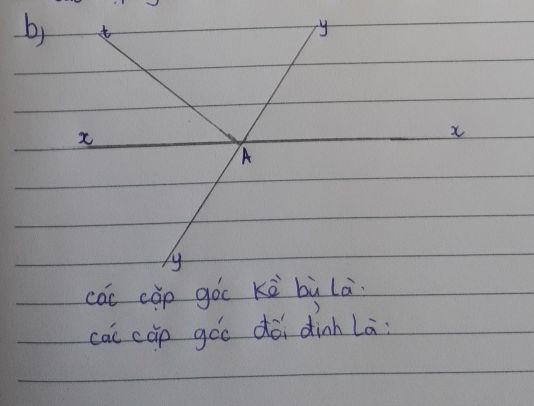 b)
t y
x x
A
y
các cặp góc kề bù là:
các cặp góc đối đỉnh là: